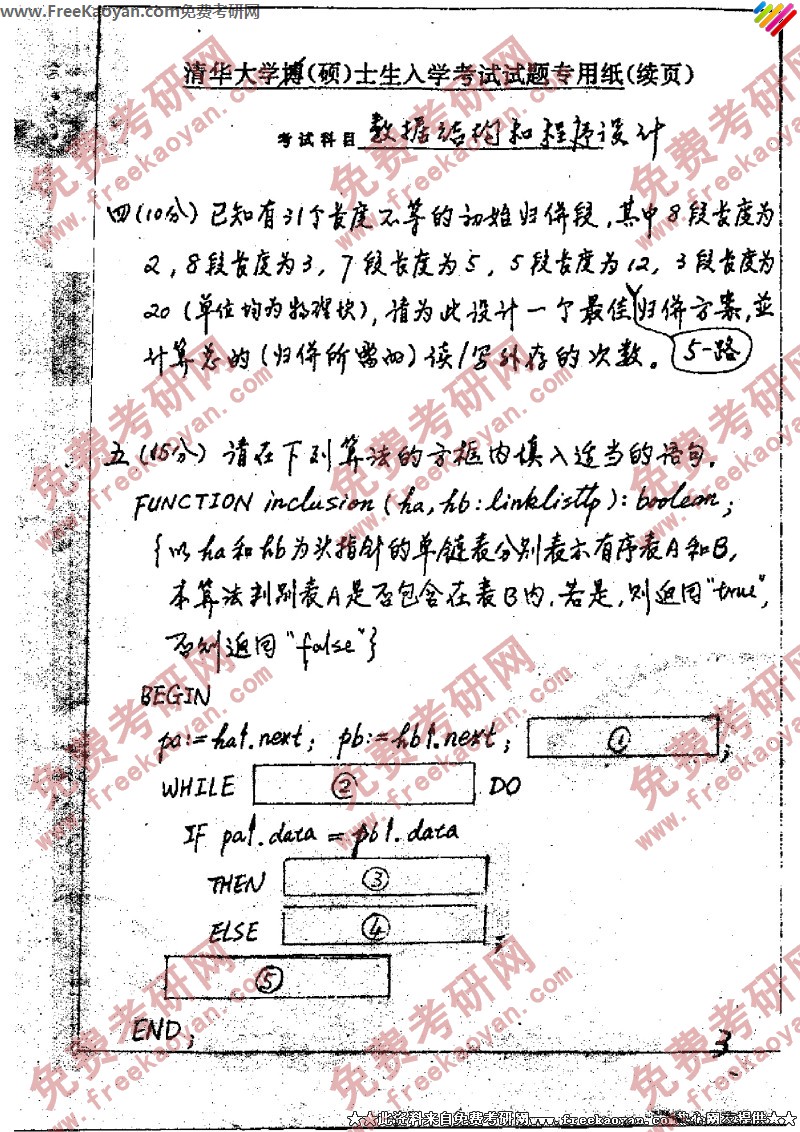 www.FreeKaoyan.com免费考研网
清华大学博(硕)士生入学考试试题专用纸(续页)
考试科目 数据结构和程序设计
四(10分) 已知有31个长度不等的初始归併段,其中8段长度为
2,8段长度为3,7段长度为5,5段长度为12,3段长度为
20(单位均为物理块),请为此设计一个最佳5-路归併方案,並
计算总的(归併所需的)读/写外存的次数。
五(15分) 请在下列算法的方框内填入适当的语句。
FUNCTION inclusion (ha, hb: linklisttp): boolean;
{以ha和hb为头指针的单链表分别表示有序表A和B,
本算法判别表A是否包含在表B内,若是,则返回"true",
否则返回"false"}
BEGIN
pa:=ha↑.next; pb:=hb↑.next; ① ;
WHILE ② DO
IF pa↑.data = pb↑.data
THEN ③
ELSE ④ ;
⑤
END;
3
免费考研网
www.freekaoyan.com
★★此资料来自免费考研网www.freekaoyan.com热心网友提供★★